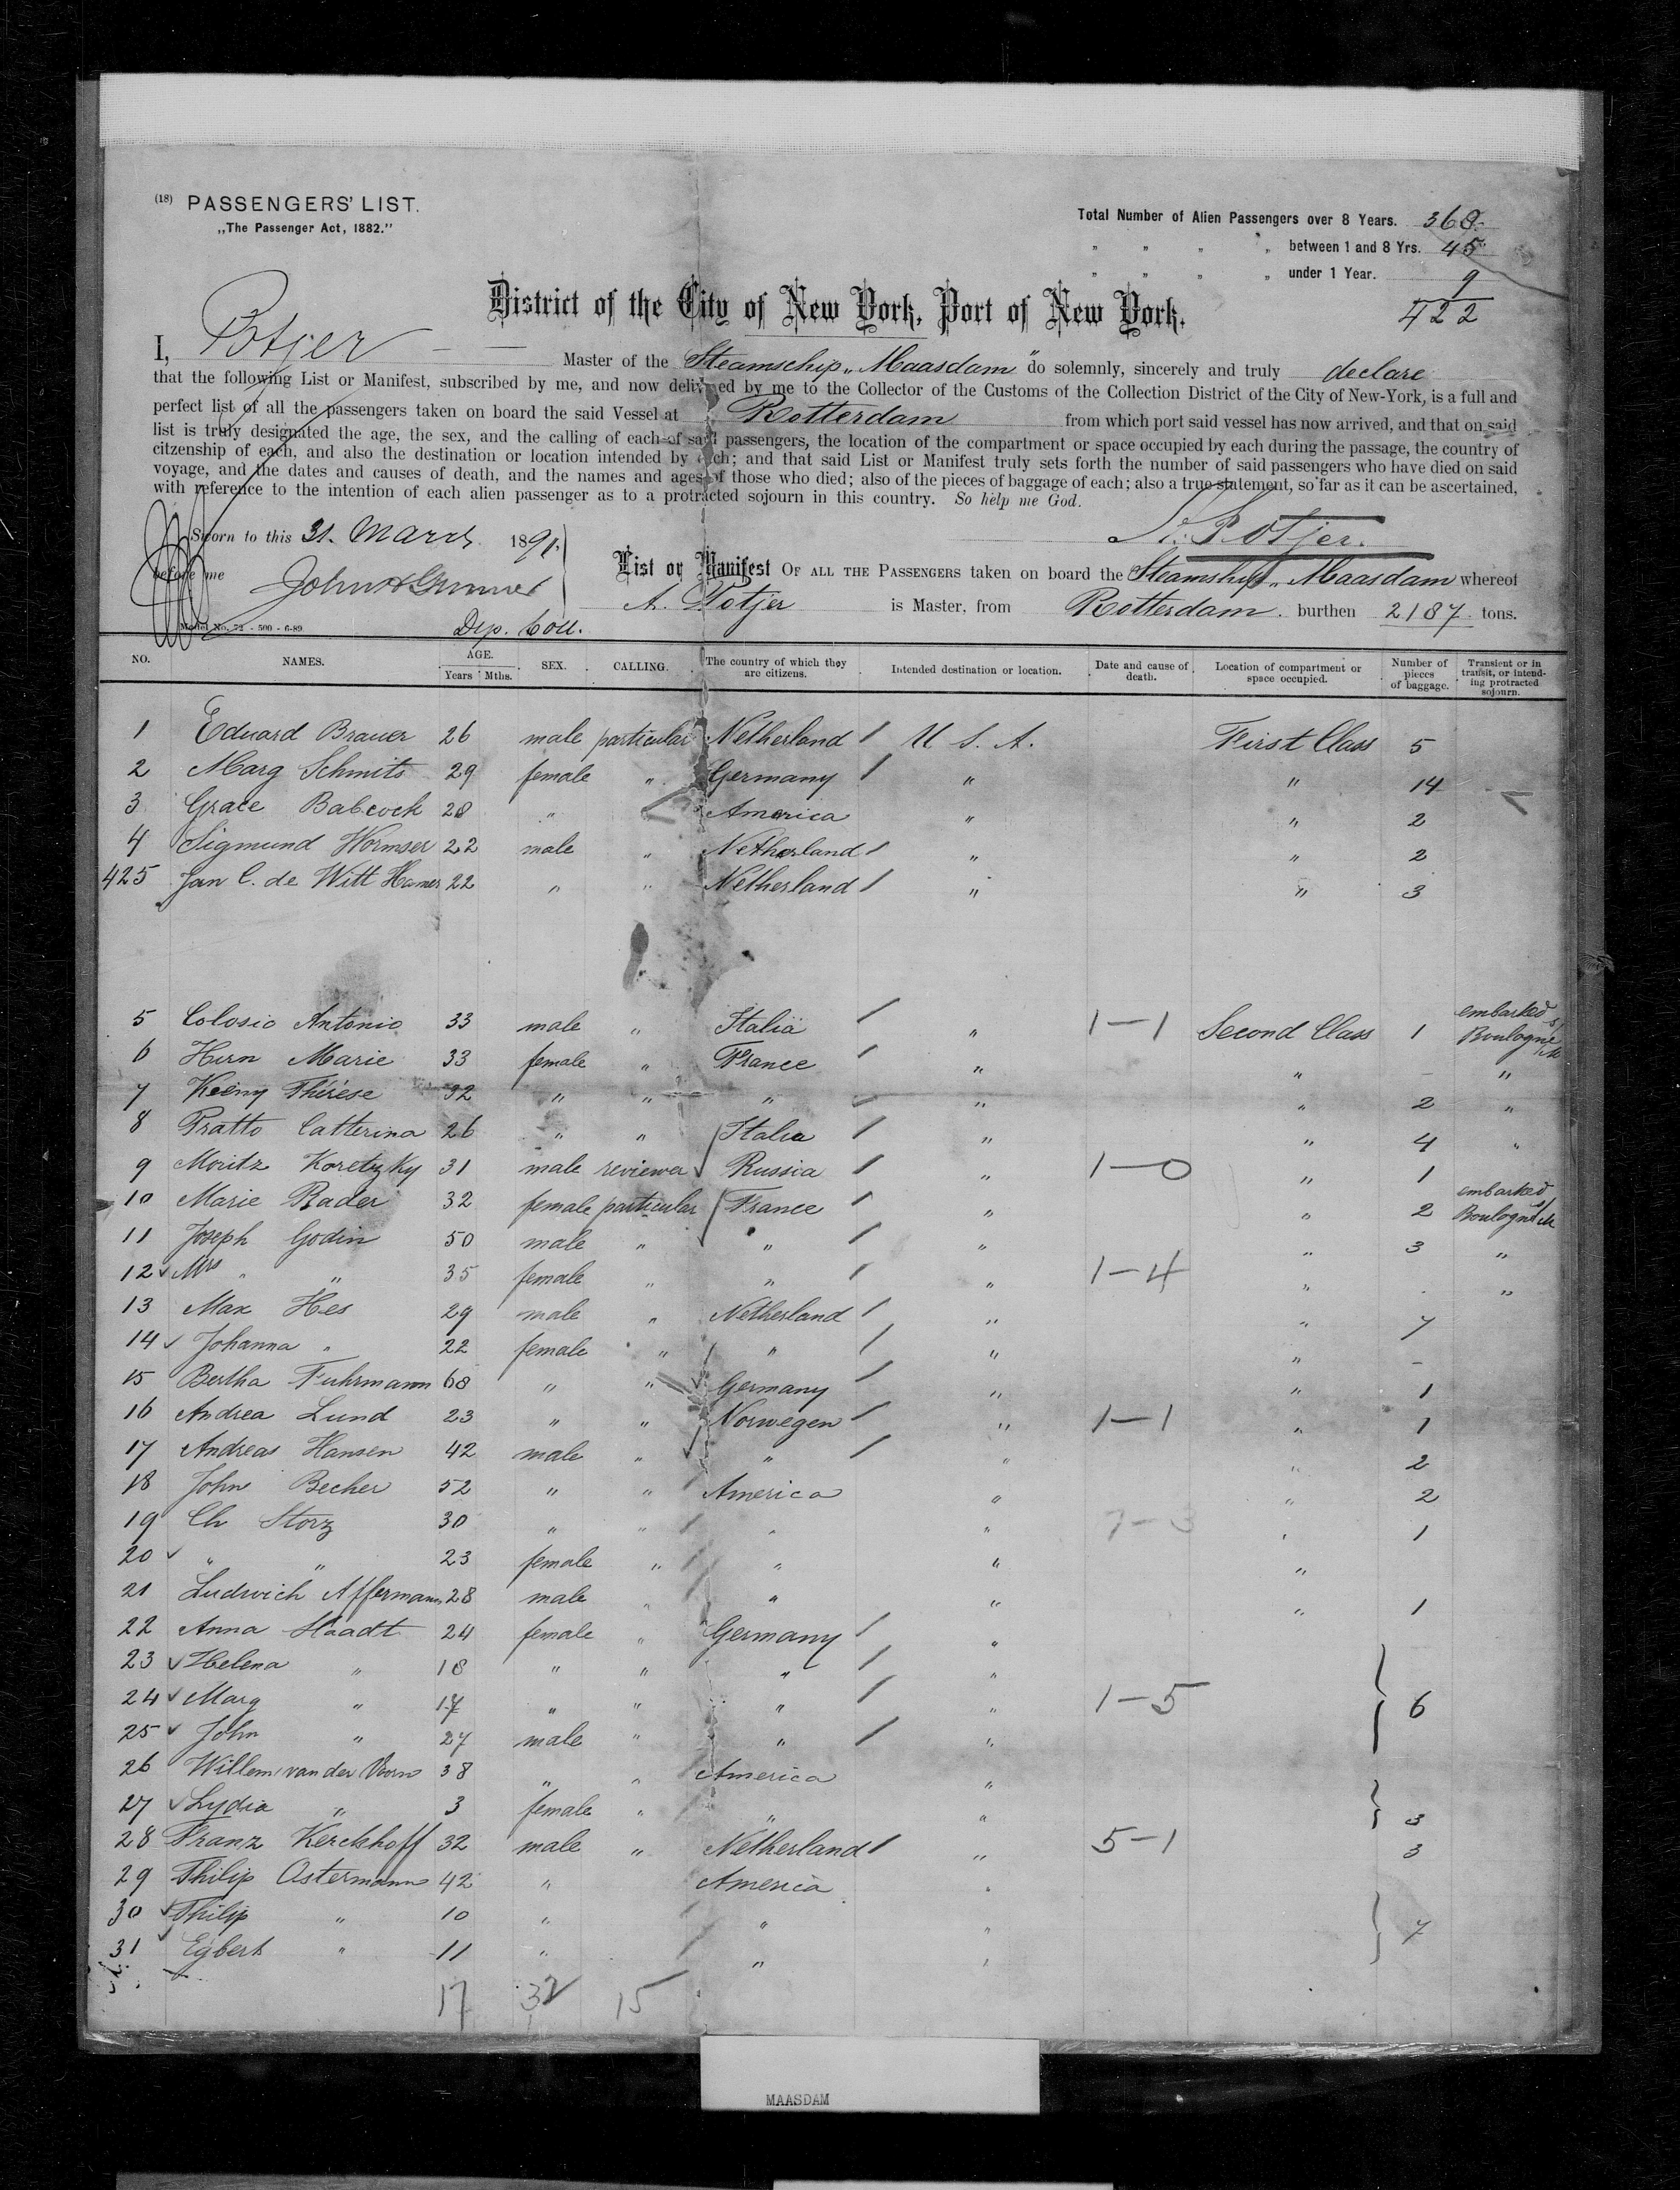 (18) PASSENGERS' LIST.
„The Passenger Act, 1882.”
Total Number of Alien Passengers over 8 Years. 368
„ „ „ „ between 1 and 8 Yrs. 45
„ „ „ „ under 1 Year. 9
422
District of the City of New York, Port of New York.
I, Potjer Master of the Steamschip „Maasdam” do solemnly, sincerely and truly declare
that the following List or Manifest, subscribed by me, and now delivered by me to the Collector of the Customs of the Collection District of the City of New-York, is a full and
perfect list of all the passengers taken on board the said Vessel at Rotterdam from which port said vessel has now arrived, and that on said
list is truly designated the age, the sex, and the calling of each of said passengers, the location of the compartment or space occupied by each during the passage, the country of
citzenship of each, and also the destination or location intended by each; and that said List or Manifest truly sets forth the number of said passengers who have died on said
voyage, and the dates and causes of death, and the names and ages of those who died; also of the pieces of baggage of each; also a true statement, so far as it can be ascertained,
with reference to the intention of each alien passenger as to a protracted sojourn in this country. So help me God.
A. Potjer.
Sworn to this 31. March 1891.
before me
Dep. Coll.
Model No. 72 - 500 - 6-89.
List or Manifest OF ALL THE PASSENGERS taken on board the Steamship „Maasdam whereof
A. Potjer is Master, from Rotterdam. burthen 2187 tons.
NO. NAMES. AGE. Years Mths. SEX. CALLING. The country of which they are citizens. Intended destination or location. Date and cause of death. Location of compartment or space occupied. Number of pieces of baggage. Transient or in transit, or intending protracted sojourn.
1 Eduard Brauer 26 male particular Netherland / U. S. A. First Class 5
2 Marg Schmits 29 female „ Germany / „ „ 14
3 Grace Babcock 28 „ America „ „ 2
4 Sigmund Wormser 22 male „ Netherland / „ „ 2
425 Jan C. de Witt Hamer 22 „ „ Netherland / „ „ 3
5 Colosio Antonio 33 male „ Italia / „ 1-1 Second Class 1 embarked Boulogne
6 Hirn Marie 33 female „ France / „ „ - „
7 Thérèse 32 „ „ „ / „ „ 2 „
8 Pratto Catterina 26 „ „ Italia / „ „ 4 „
9 Moritz Koretzky 31 male reviewer Russia / „ 1-0 „ 1
10 Marie Rader 32 female particular France / „ „ 2 embarked Boulogne
11 Joseph Godin 50 male „ „ / „ „ 3 „
12 Mrs „ „ 35 female „ „ / „ 1-4 „ . „
13 Max Hes 29 male „ Netherland / „ „ 7
14 Johanna „ 22 female „ „ / „ „ -
15 Bertha Fuhrmann 68 „ „ Germany / „ „ 1
16 Andrea Lund 23 „ „ Norwegen / „ 1-1 „ 1
17 Andreas Hansen 42 male „ „ / „ „ 2
18 John Becher 52 „ „ America „ „ 2
19 Ch Storz 30 „ „ „ „ „ 1
20 „ „ 23 female „ „ „ „
21 Ludwich Affermann 28 male „ „ „ „ 1
22 Anna Haadt 24 female „ Germany / „
23 Helena „ 18 „ „ „ / „
24 Marg „ 17 „ „ „ / „ 1-5 6
25 John „ 27 male „ „ / „
26 Willem van der Voorn 38 „ „ America „
27 Lydia „ 3 female „ „ „ 3
28 Franz Kerckhoff 32 male „ Netherland / „ 5-1 3
29 Philip Ostermann 42 „ America „
30 Philip „ 10 „ „ „ 7
31 Egbert „ 11 „ „ „
17 32 15
MAASDAM